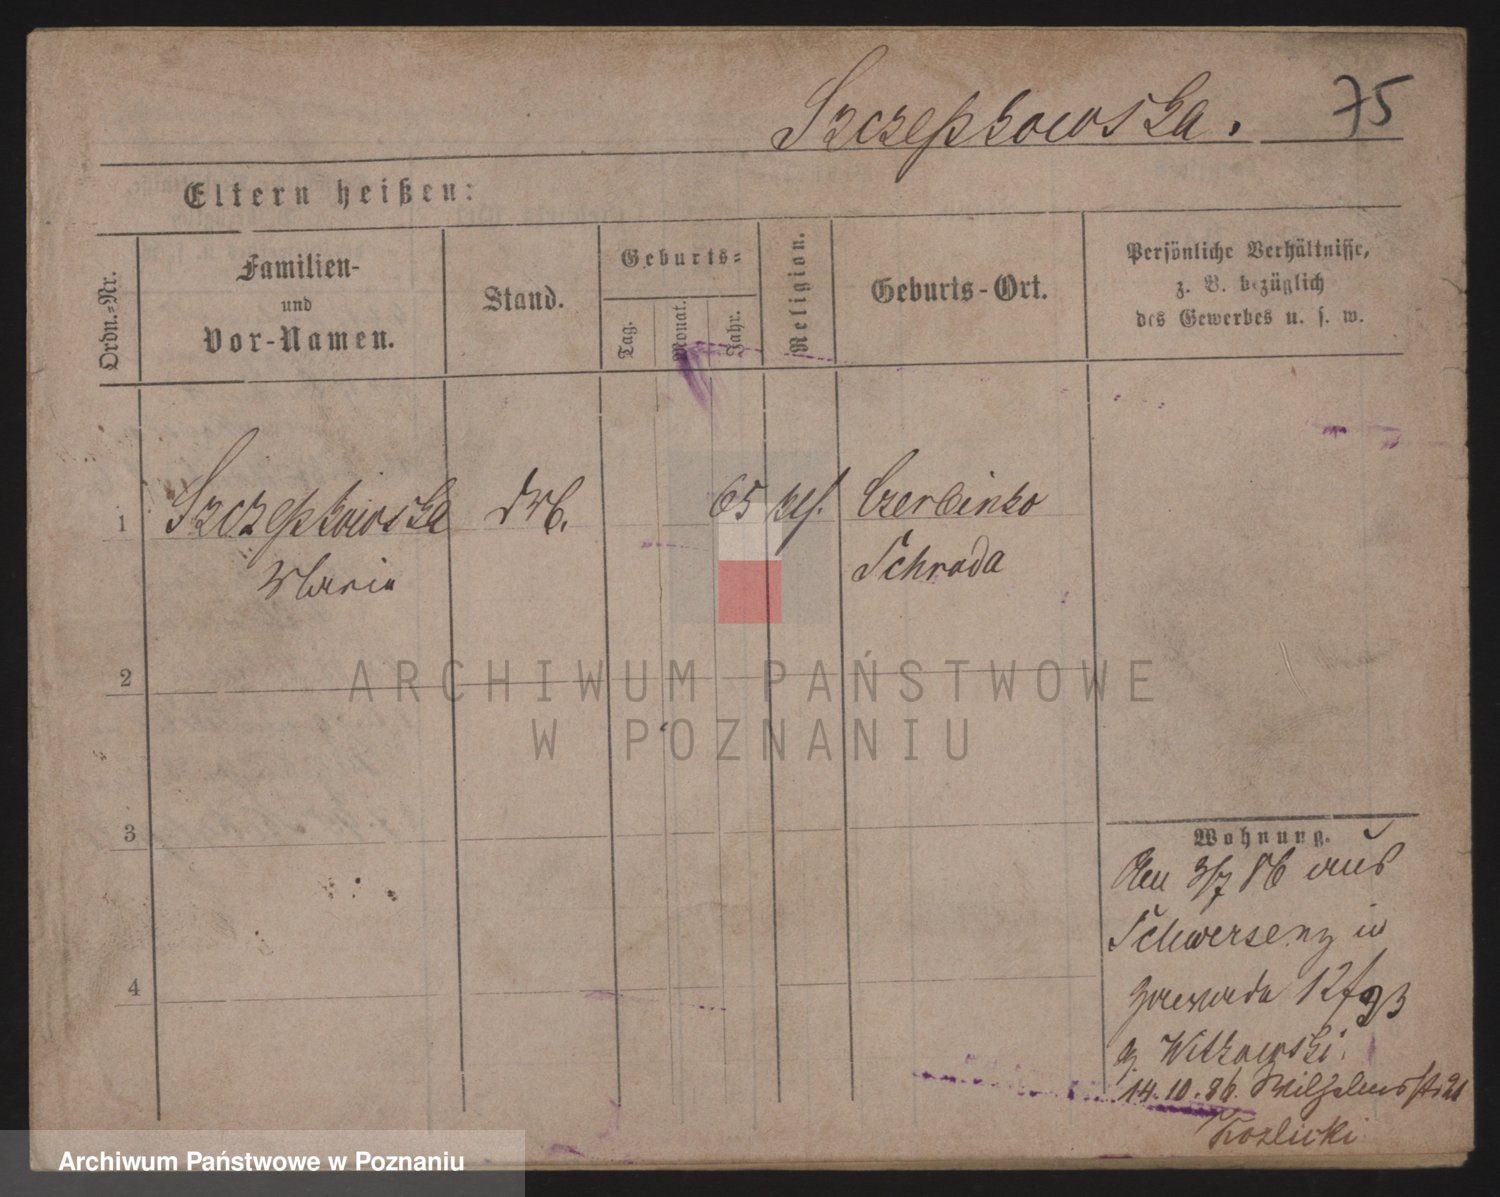 Szczepkowska. 75
Eltern heißen:
Ordn.-Nr.
Familien-
und
Vor-Namen.
Stand.
Geburts-
Tag.
Monat.
Jahr.
Religion.
Geburts-Ort.
Persönliche Verhältnisse,
z. B. bezüglich
des Gewerbes u. s. w.
1 Szczepkowska 65
Maria Schroda
2
ARCHIWUM PAŃSTWOWE
W POZNANIU
3
4
Wohnung.
3/7 86 aus
Schwersenz in
Zawade 12
Witkowski
14.10.86. Wilhelmsstr 21
Kozlicki
Archiwum Państwowe w Poznaniu